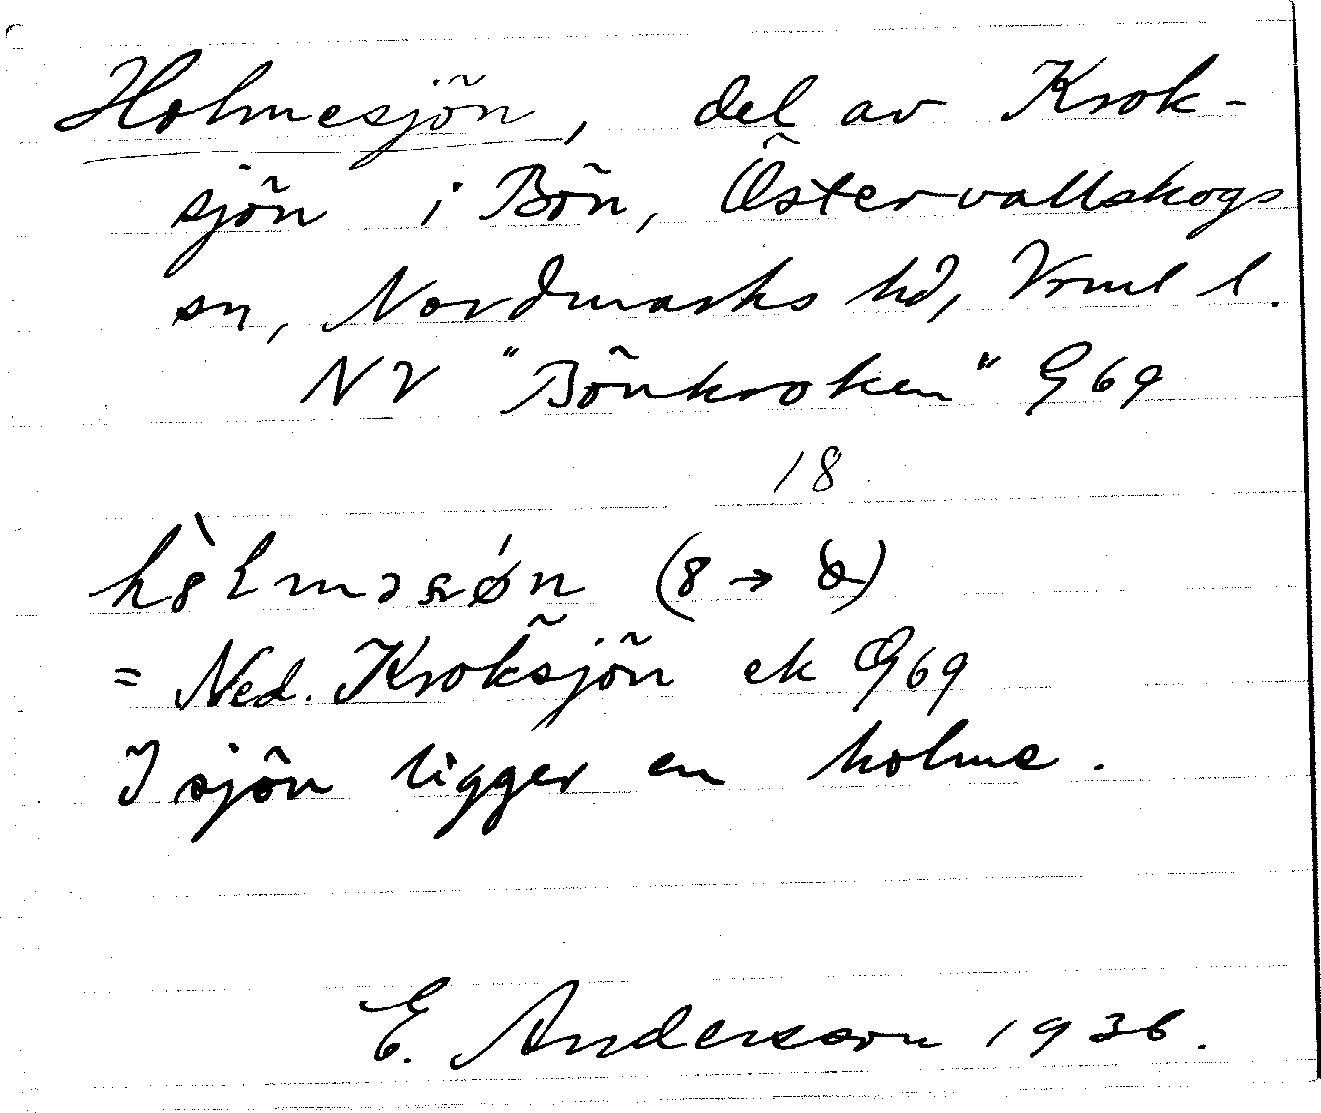 Holmesjön, del av Krok-
sjön i Bön, Östervallskogs
sn, Nordmarks hd, Vrml l.
NV "Bönkroken" G69
18
= Ned. Kroksjön ek G69
I sjön ligger en holme.
E. Andersson 1936.